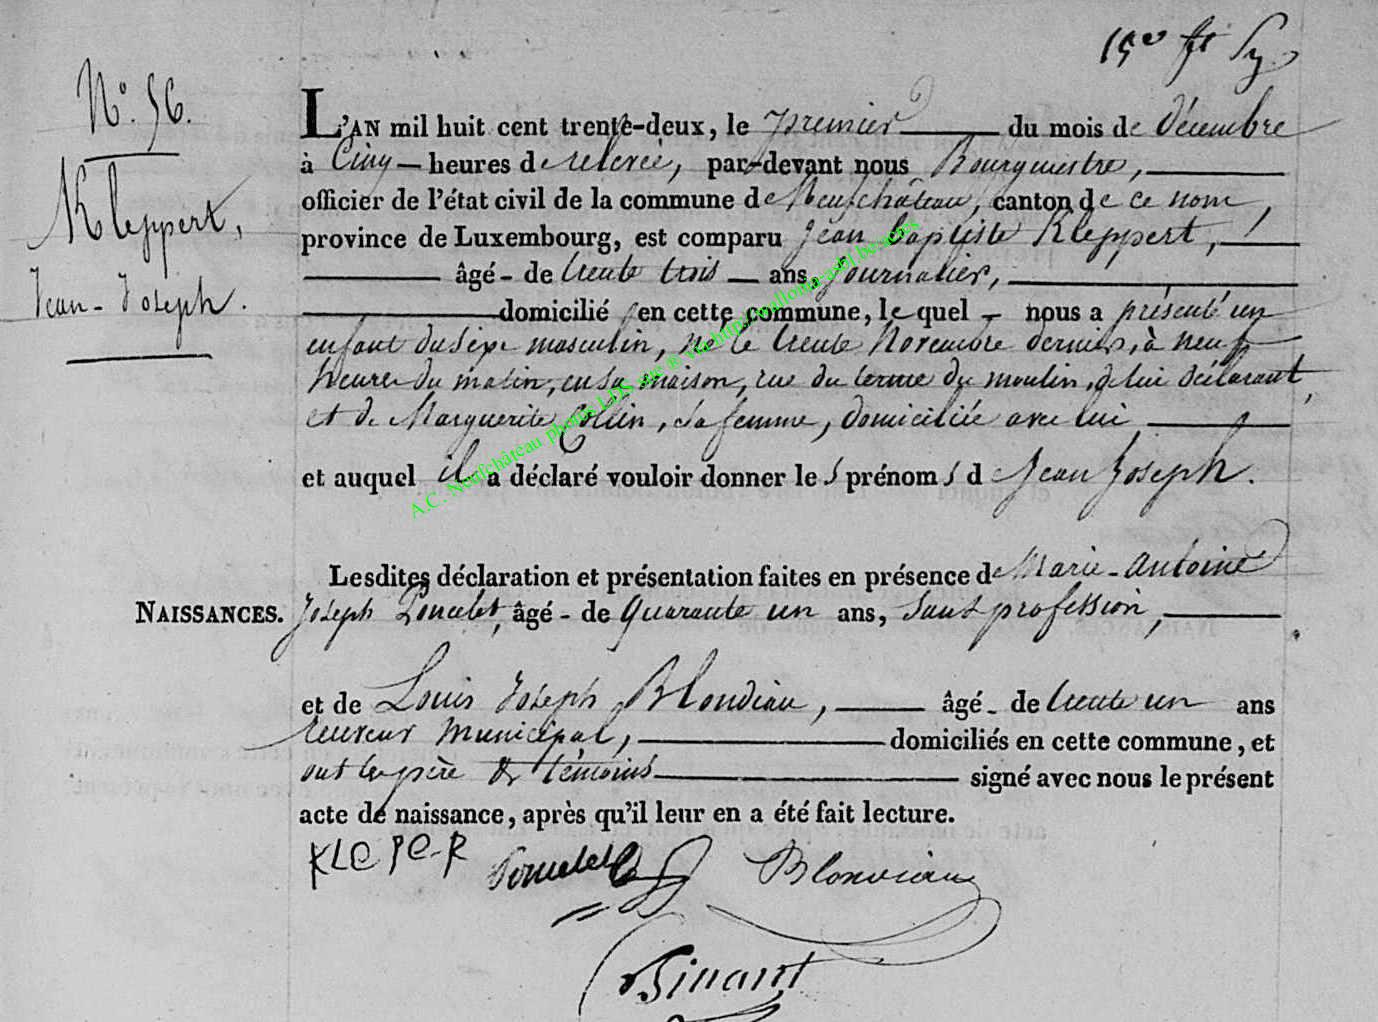 N.° 56.
Kleppert,
Jean-Joseph.
L'AN mil huit cent trente-deux, le premier du mois de décembre
à Cinq heures de relevée, par-devant nous Bourgmestre,
officier de l'état civil de la commune de Neufchâteau, canton de ce nom,
province de Luxembourg, est comparu Jean Baptiste Kleppert,
âgé - de trente trois ans, Journalier,
domicilié en cette commune, le quel nous a présenté un
enfant du sexe masculin, né le trente Novembre dernier, à neuf
heures du matin, en sa maison, rue du terme du moulin, de lui déclarant,
et de Marguerite Collin, sa femme, domiciliée avec lui
et auquel il a déclaré vouloir donner les prénoms d Jean Joseph.
Lesdites déclaration et présentation faites en présence de Marie-Antoine
NAISSANCES. Joseph Poncelet, âgé - de Quarante un ans, sans profession,
et de Louis Joseph Blondiau, âgé - de trente un ans
receveur municipal, domiciliés en cette commune, et
ont les père & témoins signé avec nous le présent
acte de naissance, après qu'il leur en a été fait lecture.
KLEPER Poncelet Blondiau
Binant
A.C. Neufchâteau photos LDS src ® via http://wallonia.asbl.be/actes